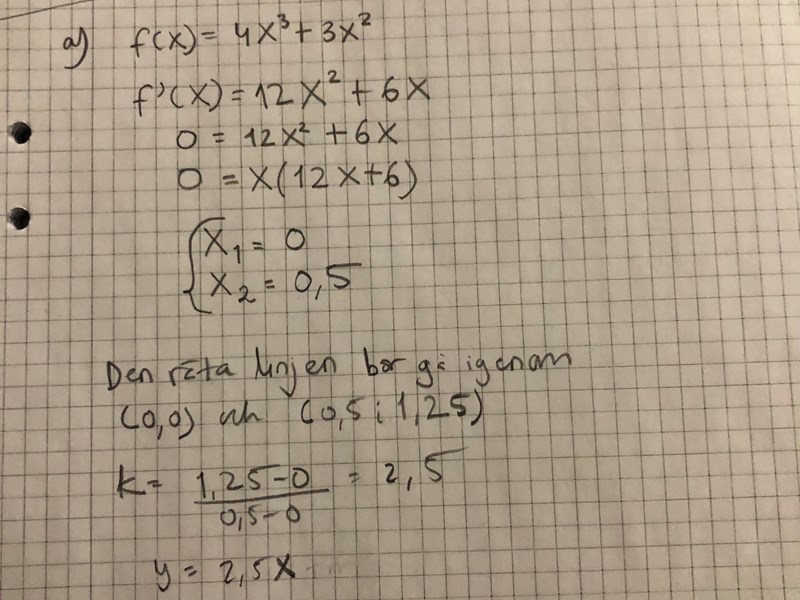 a) f(x) = 4x³ + 3x²
f'(x) = 12x² + 6x
0 = 12x² + 6x
0 = x(12x+6)
x₁ = 0
x₂ = 0,5
Den räta linjen bör gå igenom
(0,0) och (0,5; 1,25)
k = (1,25-0)/(0,5-0) = 2,5
y = 2,5x